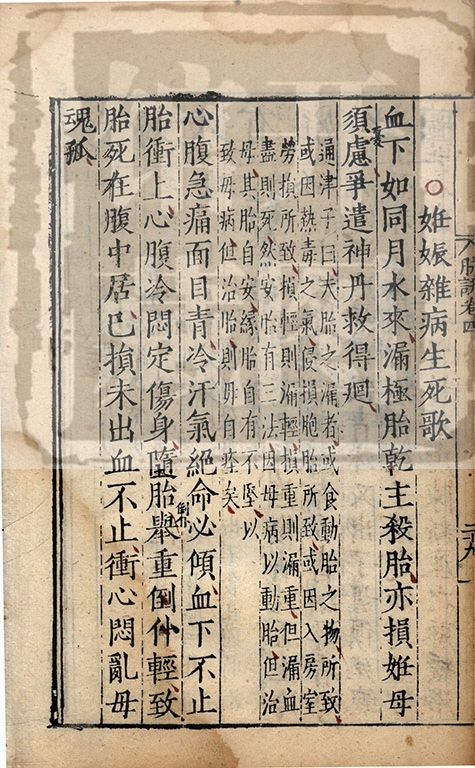 脉訣卷四
二十九
○妊娠雜病生死歌
血下如同月水來漏極胎乾主殺胎亦損妊母
須憂慮爭遣神丹救得𢌞
通津子曰夫胎之漏者或食動胎之物所致
或因熱毒之氣侵損胞胎所致或因入房室
勞損所致損輕則漏輕損重則漏重但漏血
盡則死然安胎有三法因母病以動胎但治
母其胎自安緣胎自有不堅以
致母病但治胎則母自痊矣
心腹急痛面目青冷汗氣絕命必傾血下不止
胎衝上心腹冷悶定傷身墮胎舉重倒仆輕致
胎死在腹中居已損未出血不止衝心悶亂母
魂孤